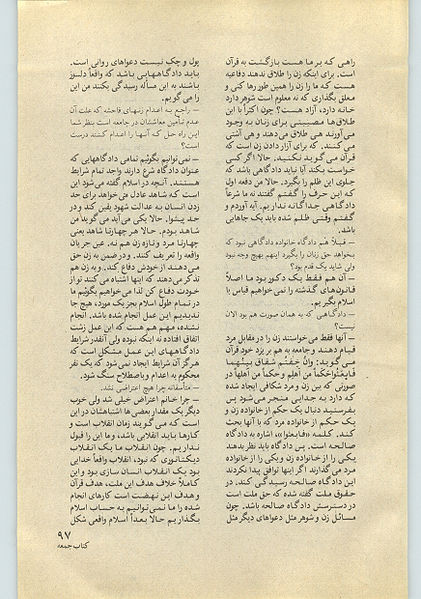 راهی که بر ما هست بازگشت به قرآن
است. برای اینکه زن را طلاق ندهند دفاعیه
هست که ما را زن را همین طور رها کنی و
معلق بگذاری که نه معلوم است شوهر دارد
خانه دارد، آزاد هست؟ چون اکثراً با این
طلاق‌ها مصیبتی برای زنان به وجود
می‌آورند هی طلاق می‌دهند و هی آشتی
می‌کنند. که برای آزار دادن زن است که
قرآن می‌گوید نکنید. حالا اگر کسی
خواست بکند آیا نباید دادگاهی باشد که
جلوی این ظلم را بگیرد. حالا من دفعه اول
که این حرف را گفتم گفتند نه ما شرعاً
دادگاهی جداگانه نداریم. آیه آوردم و
گفتم وقتی ظلم شده باید یک جاهایی
باشد.
– قبلاً هم دادگاه خانواده دادگاهی نبود که
بخواهد حق زنان را بگیرد اینهم بهیچ وجه نبود
ولی شاید یک قدم بود؟
– آن هم فقط یک دکور بود ما اصلاً
قانون‌های گذشته را نمی‌خواهیم قیاس با
اسلام بگیریم.
– دادگاهی که به همان صورت هم بود الان
نیست؟
– آنها فقط می‌خواستند زن را در مقابل مرد
قیام دهند و جامعه به هم بریزد خود قرآن
می‌گوید: وإنْ خِفْتُم شقاق بینهما
فابعثوا حکماً من اهلِهِ و حکماً من اهلها در
صورتی که بین زن و مرد شکافی ایجاد شده
که دارد به جدایی منجر می‌شود پس
بفرستید دنبال یک حکم از خانواده زن و
یک حکم از خانواده مرد که با آنها بحث
کند. کلمه «فابعثوا»، اشاره به دادگاه
صالحه است. پس دادگاه باید نظر بدهند
یکی را از خانواده زن و یکی را از خانواده
مرد می‌گذارند اگر اینها توافق پیدا نکردند
این دادگاه صالحه رسیدگی کند. در
حقوق ملت گفته شده که حق ملت است
در دسترسش دادگاه صالحه باشد. چون
مسائل زن و شوهر مثل دعواهای دیگر مثل
پول و چک نیست دعواهای روانی است.
باید دادگاههایی باشد که واقعاً دلسوز
باشند به این مسأله رسیدگی بکنند من این
را می‌گویم.
– راجع به اعدام زنهای فاحشه که علت آن
عدم تأمین آنها در جامعه است بنظر شما
این راه حل که آنها را اعدام کنند درست
است؟
– نمی‌توانیم بگوئیم تمامی دادگاههایی که
عنوان دادگاه شرع دارند واجد تمام شرایط
هستند. آنچه در اسلام گفته می‌شود این
است که شاهد عادل می‌خواهد برای حد
زدن انسان به عدالت شهود یقین کند و در
حد پیشوا. حالا یکی می‌آید می‌گوید من
شاهد بودم. حالا هر چهارتا شاهد یعنی
چهارتا مرد و تازه زن هم نه. عین جریان
واقعه را تعریف کنند. و در ضمن به زن حق
می‌دهند از خودش دفاع کند. و به زن هم
تذکر می‌دهند که اینها اشتباه می‌کنند تو از
خودت دفاع کن لذا می‌خواهیم بگوئیم ما
در تمام طول اسلام بجز یک مورد، هیچ جا
ندیدیم این عمل انجام شده باشد. انجام
نشده، مهم هم هست که این عمل زشت
اتفاق افتاده نه اینکه نبوده ولی آنقدر شرایط
دادگاههای این عمل مشکل است که
هرگز آن شرایط ایجاد نمی‌شود که یک نفر
محکوم به اعدام و باصطلاح سنگ شود.
– متأسفانه چرا هیچ اعتراضی نشد.
– چرا خانم اعتراض خیلی شد ولی خوب
دیگر یک مقدار بعضی ها اشتباهشان در این
است که می‌گویند زمان انقلاب است و
کارها باید انقلابی باشد، و ما این را قبول
نداریم. چون انقلاب ما یک انقلاب
دیکتاتوری که نبود، انقلاب واقعاً خدایی
بود یک انقلاب انسان سازی بود و این
کاملاً خلاف هدف این ملت، هدف قرآن
و هدف این نهضت است کارهای انجام
شده را ما نمی‌توانیم به حساب اسلام
بگذاریم حالا بعداً اسلام واقعی شکل
۹۷
کتاب جمعه